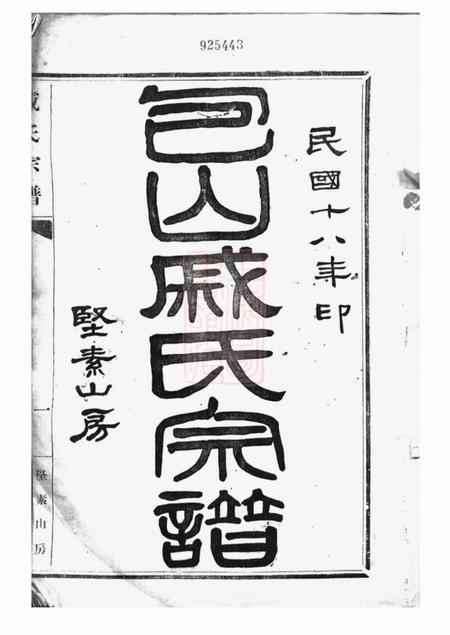 925443
民國十八年印
包山戚氏宗譜
堅素山房
戚氏宗譜
一
堅素山房